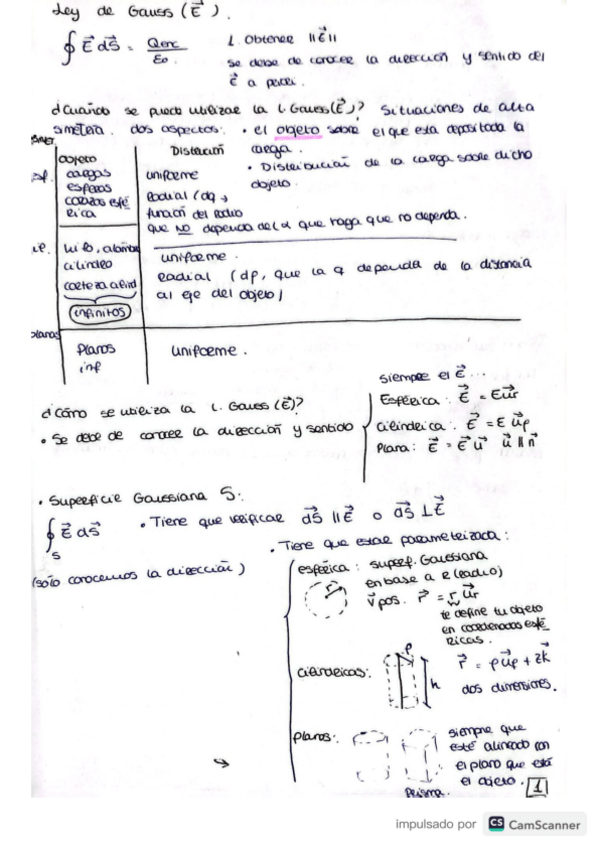 Ley de Gauss (E⃗).
∮ E⃗ dS⃗ = Qenc / ε0
1. Obtener ||E⃗||
se debe de conocer la dirección y sentido del
E⃗ a priori.
¿Cuándo se puede utilizar la L. Gauss (E⃗)? Situaciones de alta
simetría. dos aspectos: • el objeto sobre el que esta depositada la
carga.
• Distribución de la carga sobre dicho
objeto.
objeto
Distribución
esf.
cargas
esferas
corazas esfé
rica
uniforme
Radial (dq →
función del radio
que NO dependa del α que haga que no dependa.
hilo, alambre
cilindro
corteza cilind
infinitos
uniforme.
Radial (dρ, que la q dependa de la distancia
al eje del objeto)
planos
Planos
inf
uniforme.
¿Cómo se utiliza la L. Gauss (E⃗)?
• Se debe de conocer la dirección y sentido
siempre el E⃗ ...
Esférica: E⃗ = E u⃗r
Cilíndrica: E⃗ = E u⃗ρ
Plana: E⃗ = E⃗ u⃗ u⃗ || n⃗
• Superficie Gaussiana S:
∮ E⃗ dS⃗
S
• Tiene que verificar dS⃗ || E⃗ o dS⃗ ⊥ E⃗
(solo conocemos la dirección)
• Tiene que estar parametrizada:
esférica: superf. Gaussiana
en base a R (radio)
r
v⃗ pos. r⃗ = r u⃗r
te define tu objeto
en coordenadas esfé
ricas.
Cilíndricas:
ρ
h
r⃗ = ρu⃗ρ + zk⃗
dos dimensiones.
Planos:
Prisma.
siempre que
esté alineado con
el plano que está
el objeto.
1
impulsado por CS CamScanner